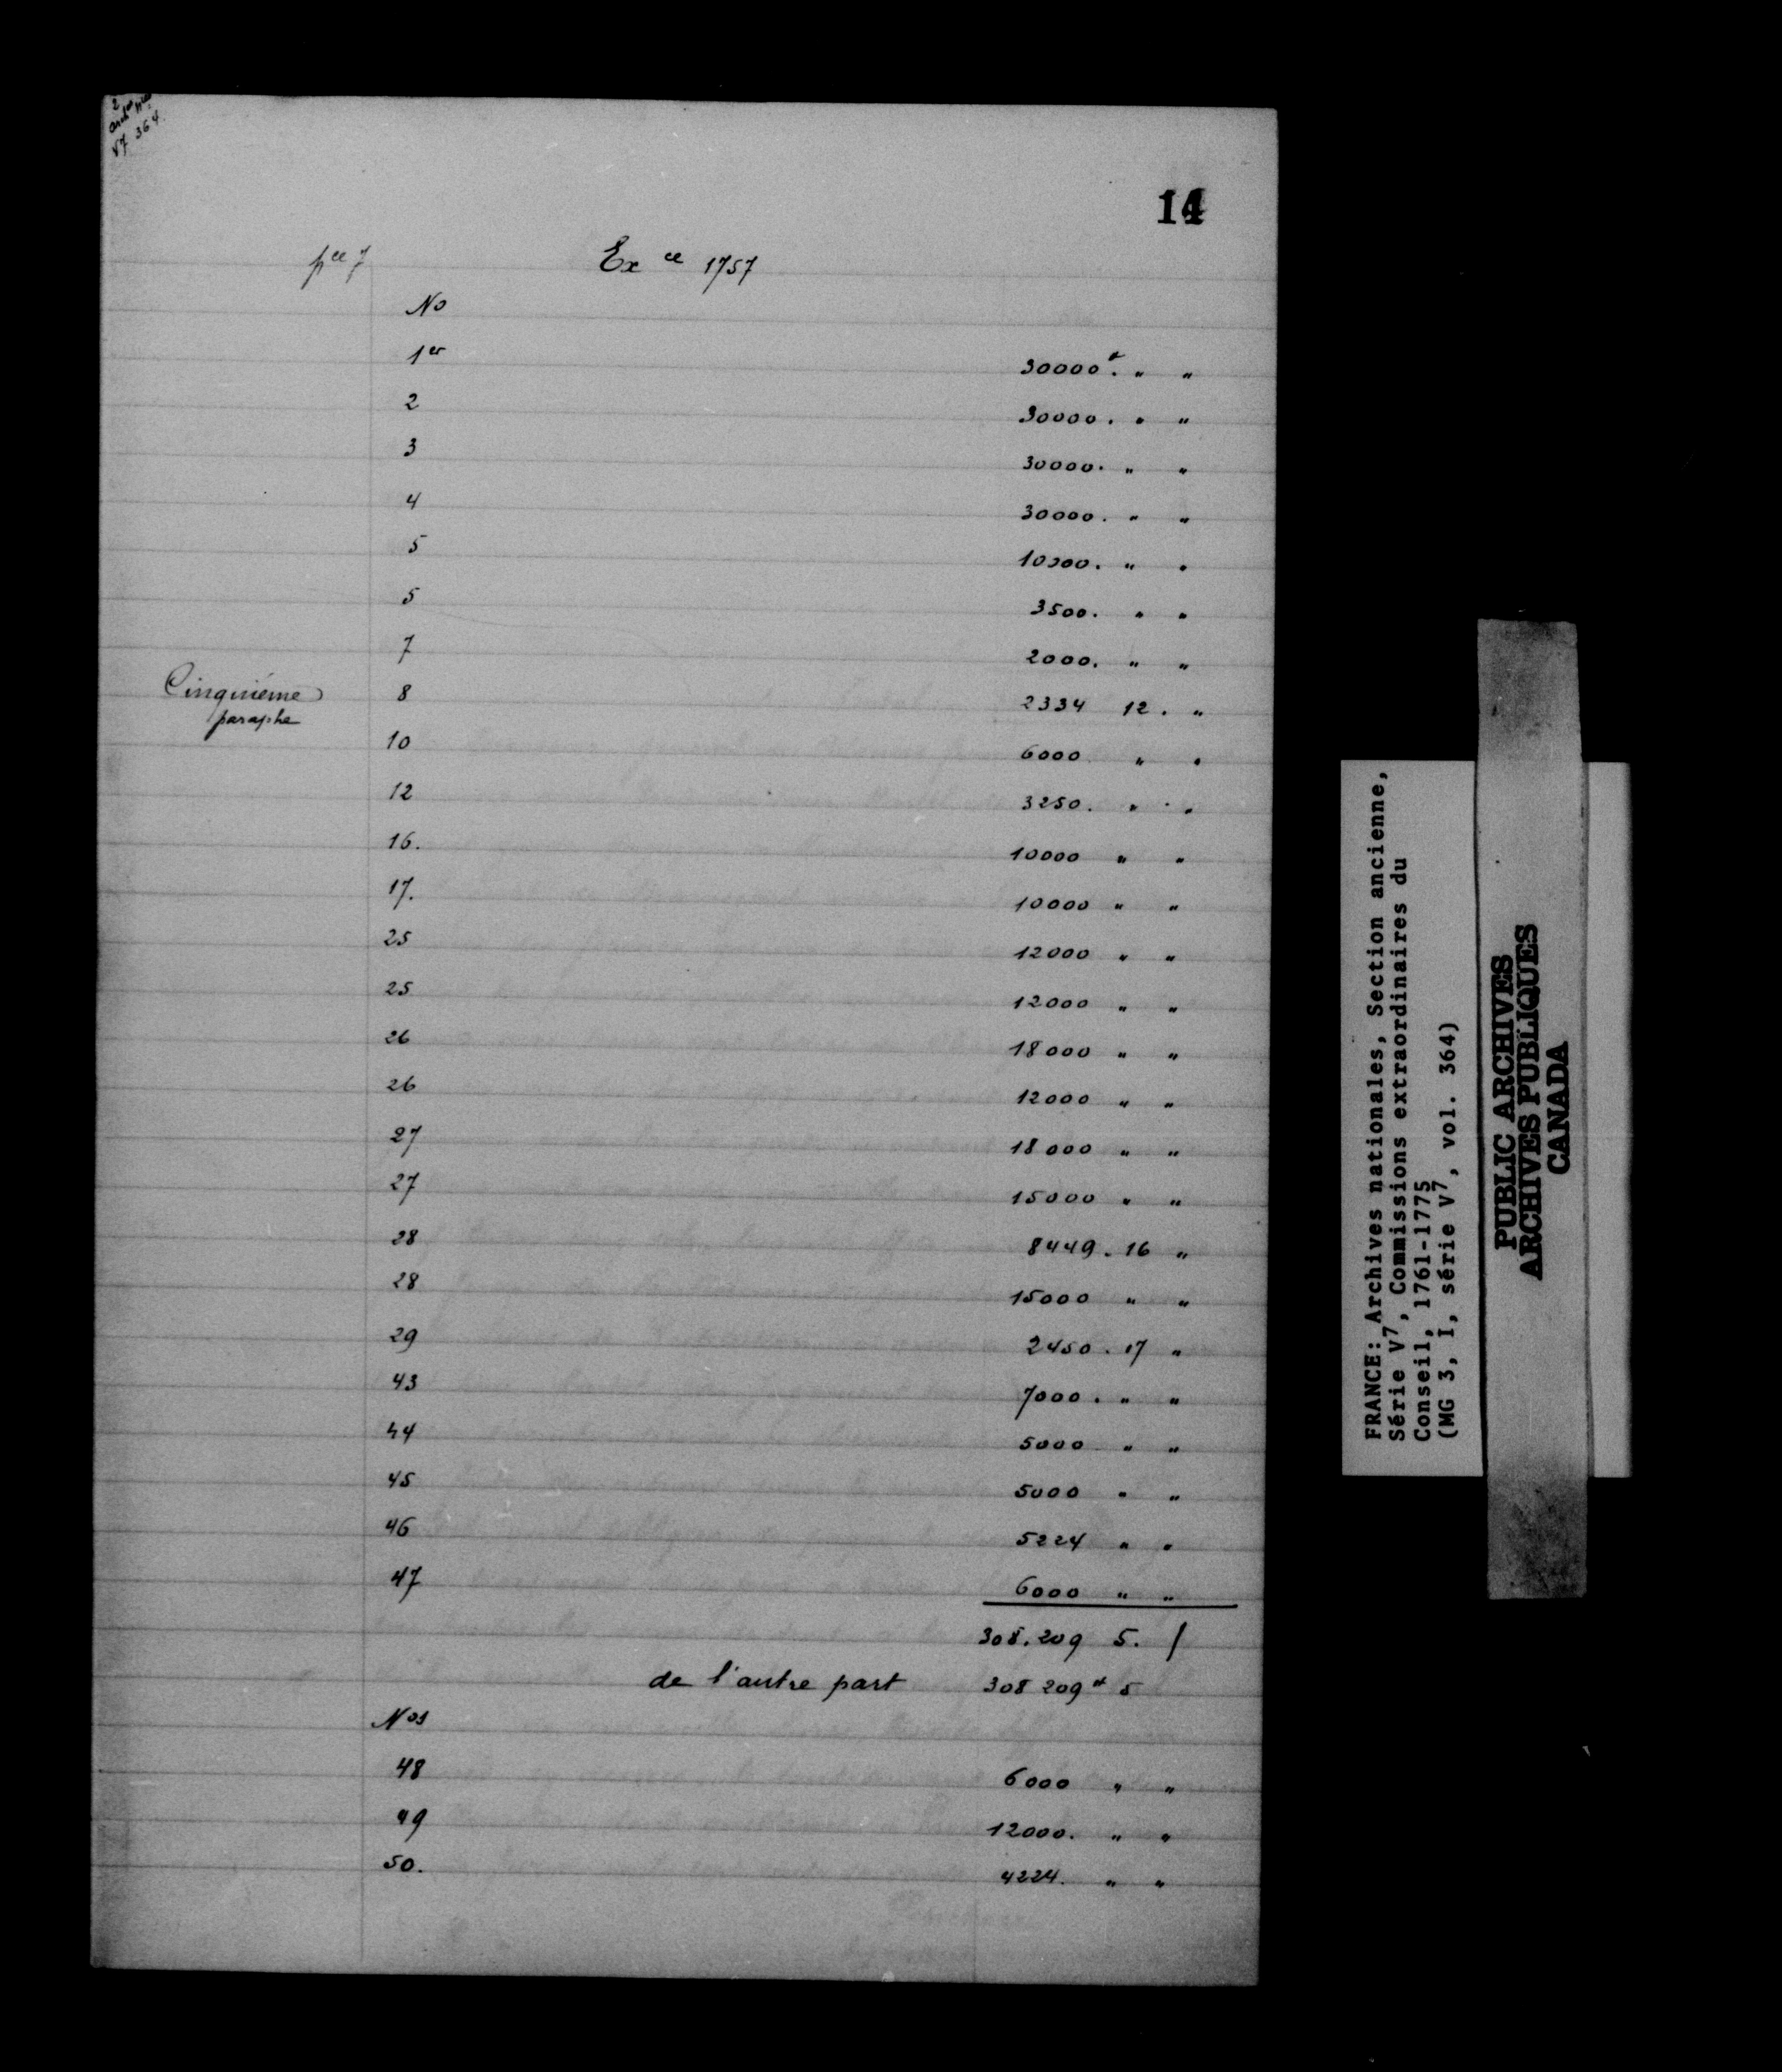 2
V7 364
14
pce 7 Ex ce 1757
No
1er 30000 # . " "
2 30000 . " "
3 30000 . " "
4 30000 . " "
5 10000 . " "
5 3500 . " "
7 2000 . " "
Cinquième 8 2334 12 . "
paraphe
10 6000 " "
12 3250 . " . "
16. 10000 " "
17. 10000 " "
25 12000 " "
25 12000 " "
26 18000 " "
26 12000 " "
27 18000 " "
27 15000 " "
28 8449 . 16 "
28 15000 " "
29 2450 . 17 "
43 7000 . " "
44 5000 " "
45 5000 " "
46 5224 " "
47 6000 " "
308.209 5. /
de l'autre part 308 209 # 5
Nos
48 6000 " "
49 12000. " "
50. 4224. " "
FRANCE: Archives nationales, Section ancienne,
Série V7, Commissions extraordinaires du
Conseil, 1761-1775
(MG 3, I, série V7, vol. 364)
PUBLIC ARCHIVES
ARCHIVES PUBLIQUES
CANADA